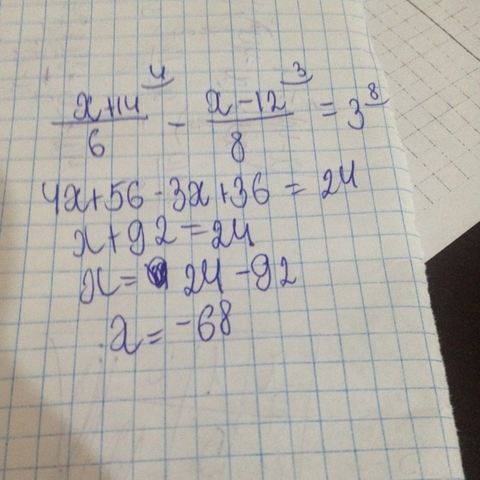 (x+14)/6 ⁴ − (x−12)/8 ³ = 3 ⁸
4x+56−3x+36 = 24
x+92=24
x= 24−92
x=−68